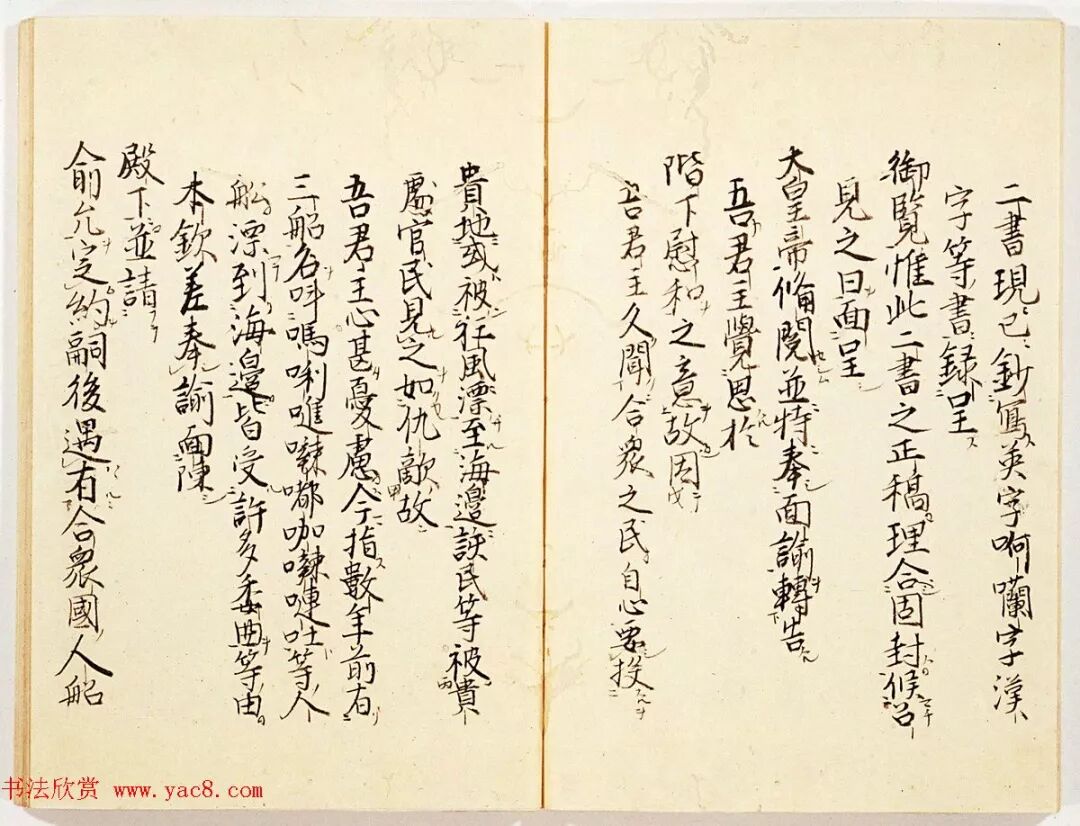 二書現已鈔寫英字啊囒字漢
字等書録呈
御覧惟此二書之正稿理合固封候召
見之日面呈
大皇帝俻閲並特奉面諭轉告
吾君主覺思於
階下慰和之意故因
吾君主久聞合衆之民自心要投
貴地或被狂風漂至海邉該民等被貴
處官民見之如仇敵故
吾君主心甚憂慮今指數年前有
三船名呌嗎唎嗺㘓嘟咖㘓嗹吐等人
船漂到海邉皆受許多委曲等由
本欽差奉諭面陳
殿下並請
俞允定約嗣後遇有合衆國人船
书法欣赏 www.yac8.com